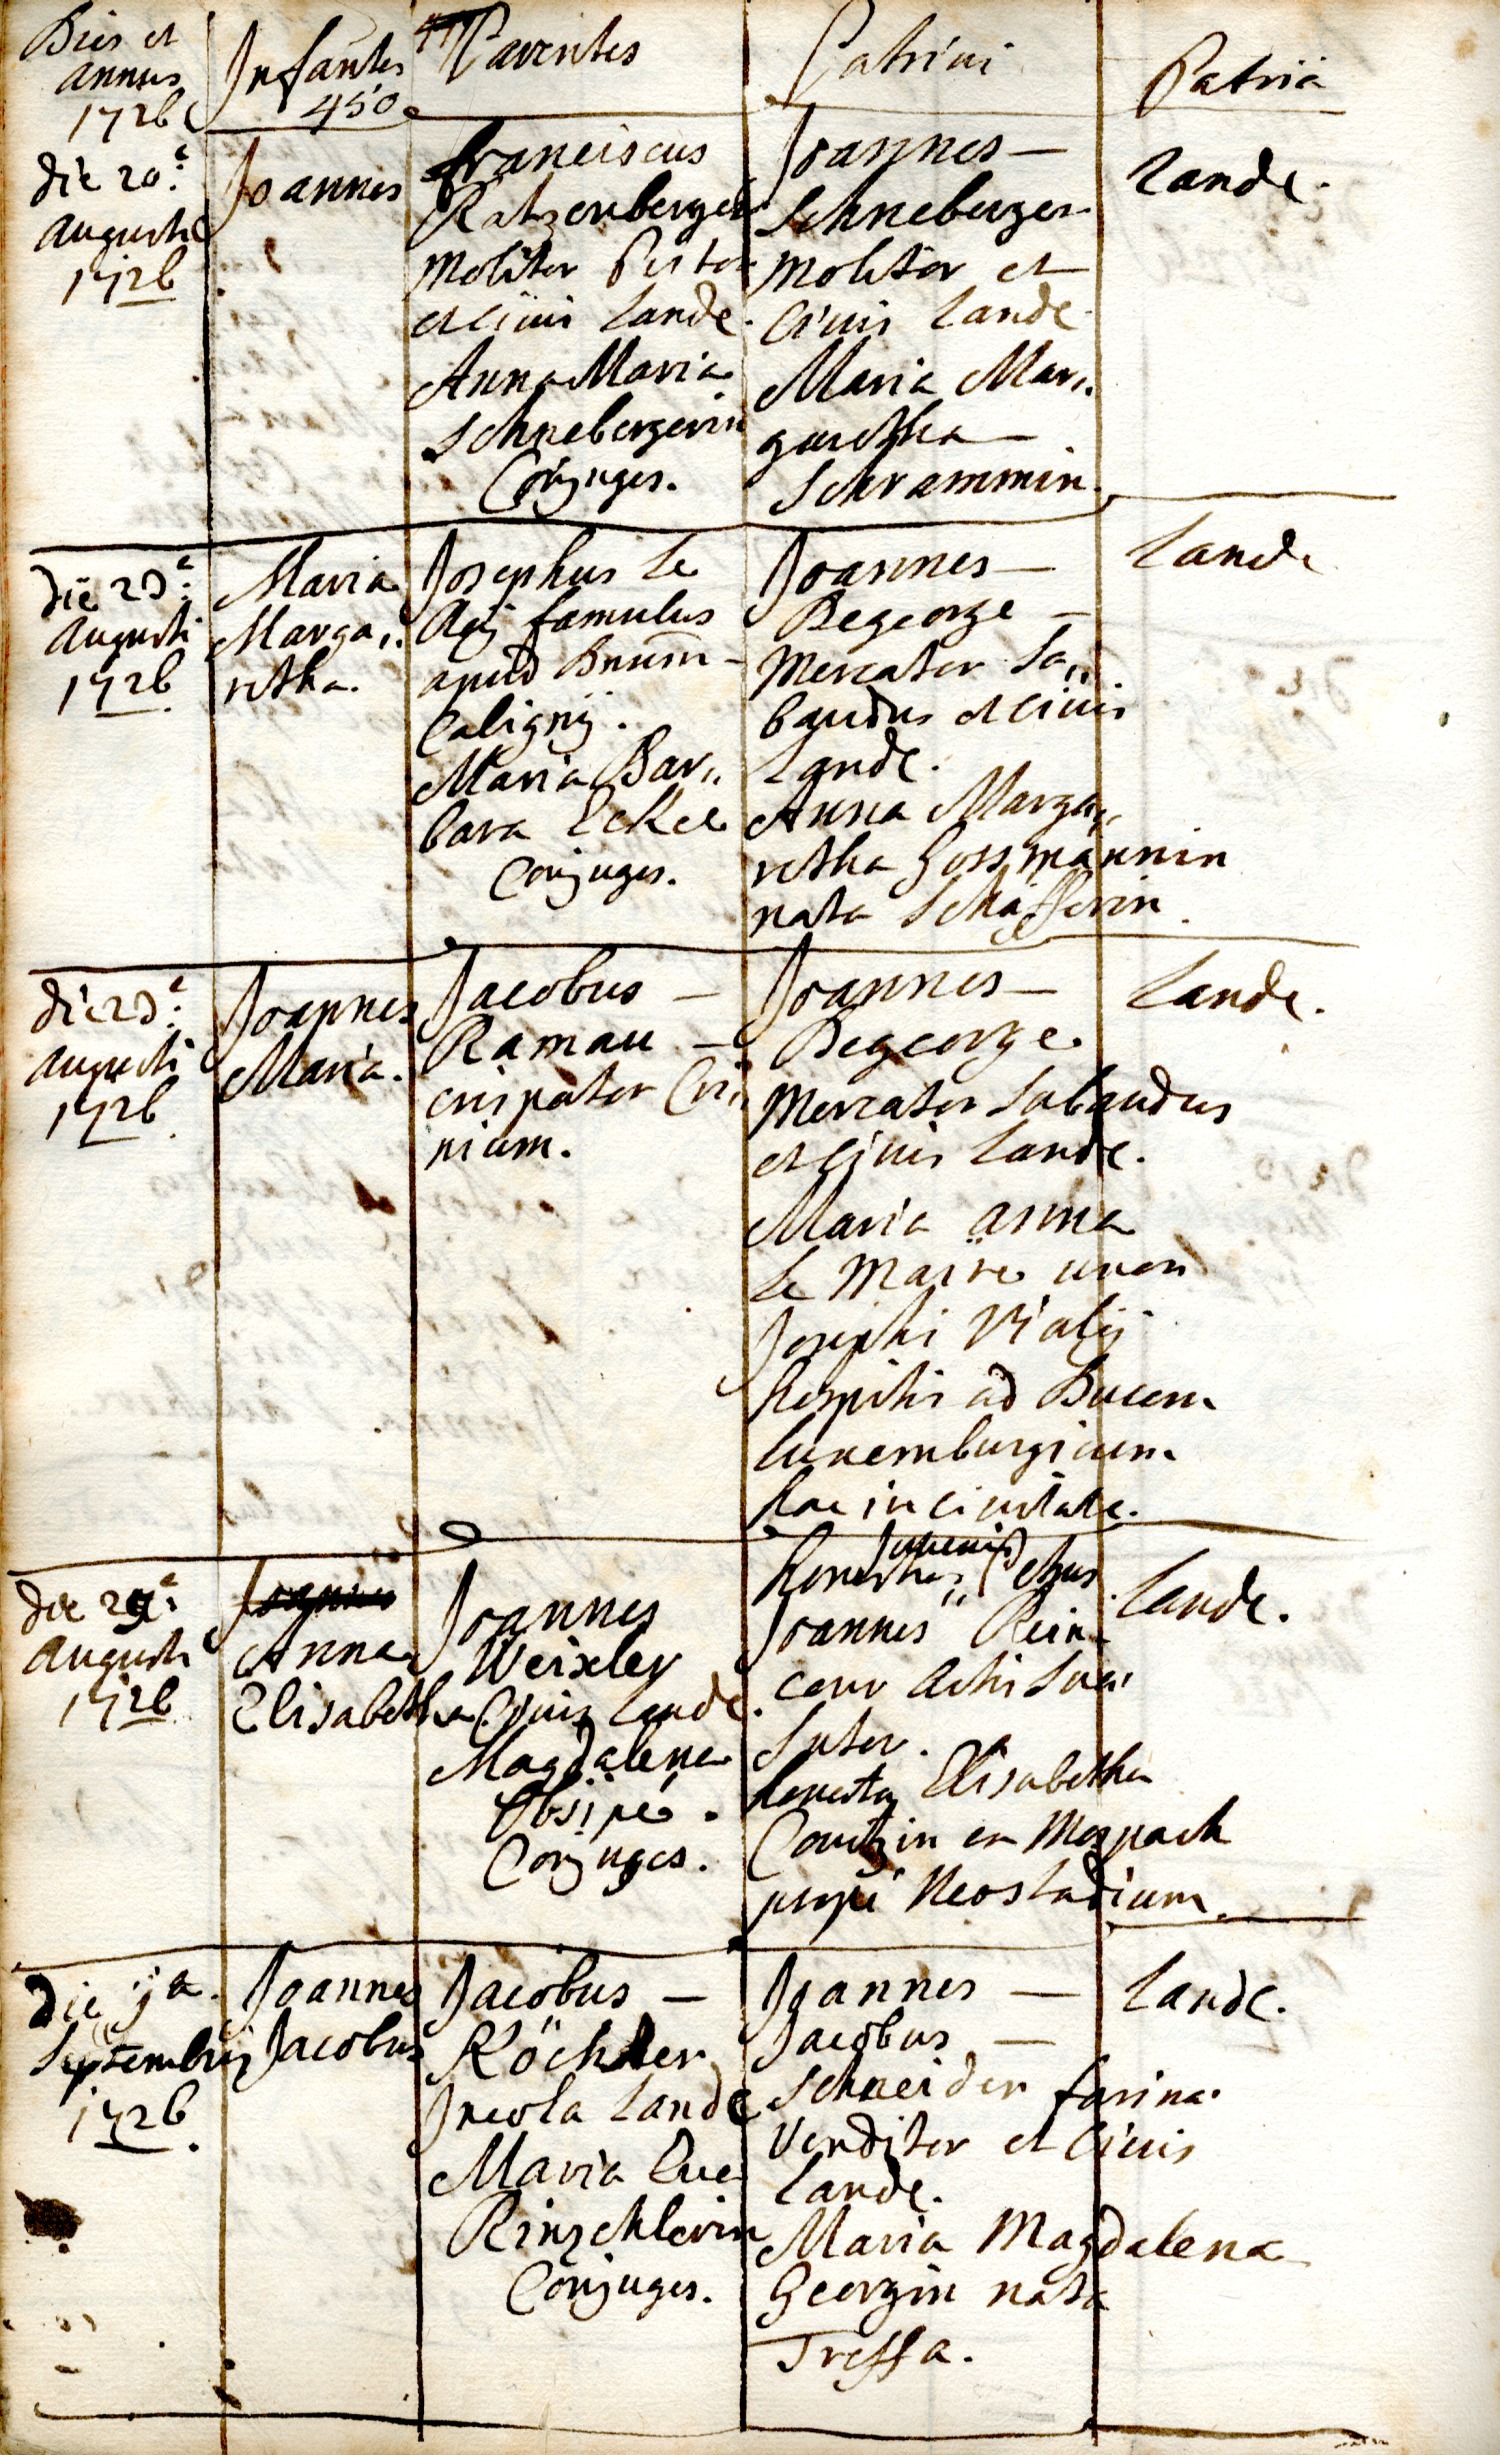 Dies et
annus
1726
Infantes
450
Parentes
Patrini
Patria
die 20.a
Augusti
1726
Joannes
Franciscus
Ratzenberger
Molitor Pistor
et Civis Landa.
Anna Maria
Schnebergerin
Conjuges.
Joannes –
Schneberger
Molitor et
Civis Landa.
Maria Mar„
garetha –
Schrammin.
Landa.
die 23.a
Augusti
1726
Maria
Marga„
retha.
Josephus le
famulus
apud Dnum –
Caligny.
Maria Bar„
bara Eckel
Conjuges.
Joannes –
Begeorge –
Mercator Sa„
baudus et Civis
Landa.
Anna Marga„
retha Gossmännin
nata Schäfferin.
Landa
die 23.a
Augusti
1726
Joannes
Maria.
Jacobus –
Ramau –
crispator Cri„
nium.
Joannes –
Begeorge
Mercator Sabaudus
et Civis Landa.
Maria Anna
le Maire uxor
Josephi Vialis
hospitis ad Ducem
Luxemburgicum
hac in civitate.
Landa.
die 29.a
Augusti
1726
Anna
Elisabetha
Joannes
Weixler
Civis Landa.
Magdalena
Obsipé.
Conjuges.
Juvenis
honestus
Joannes
Sutor.
honesta Elisabetha
ex Mospach
prope Neostadium.
Landa.
Die 1a.
Septembris
1726
Joannes
Jacobus
Jacobus –
Köchler
Incola Landa
Maria Eva
Rinschlerin
Conjuges.
Joannes –
Jacobus –
Schneider farina
Venditor et Civis
Landa.
Maria Magdalena
Georgin nata
Treffa.
Landa.